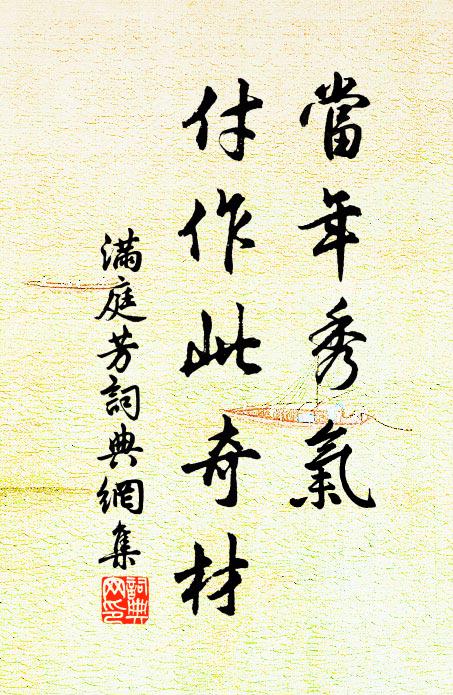 當年秀氣
付作此奇材
滿庭芳詞典網集
詞典网印